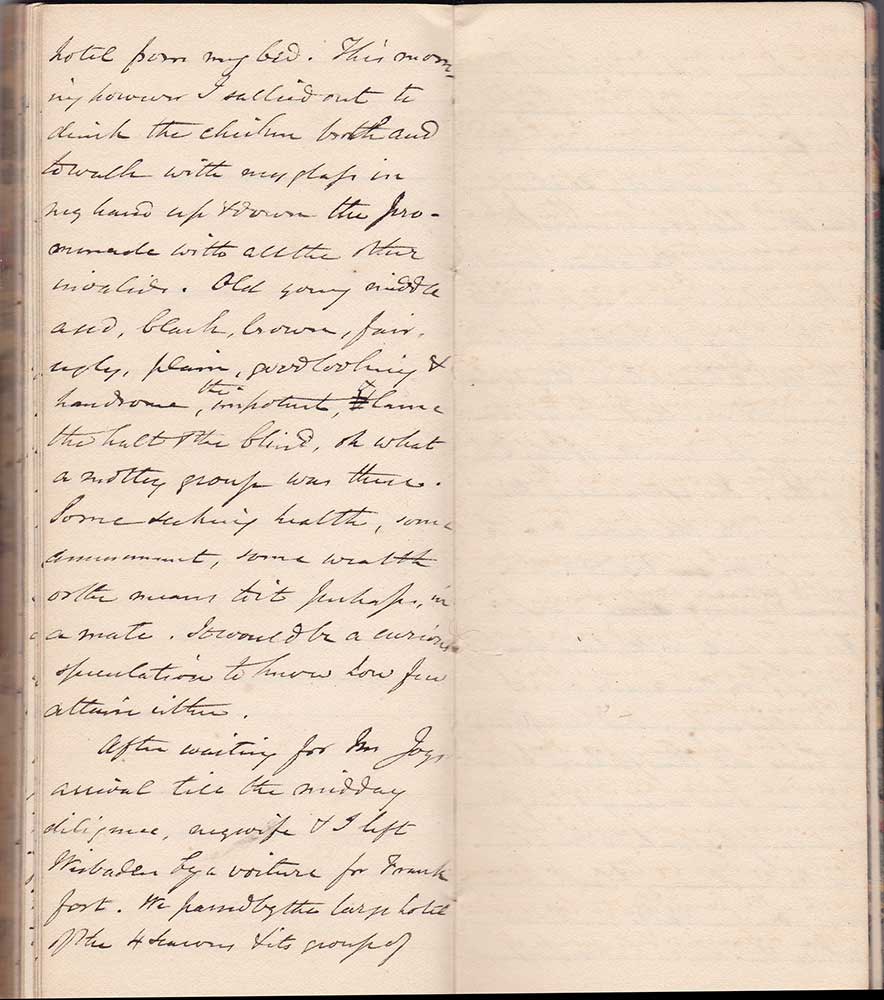 hotel from my bed. This morn-
ing however I sallied out to
drink the chicken broth and
to walk with my glass in
my hand up & down the pro-
menade with all the other
invalids. Old young middle
aged, black, brown, fair,
ugly, plain, goodlooking &
handsome, the impotent, lame
the halt & the blind, oh what
a motley group was there.
Some seeking health, some
amusement, some wealth
or the means to it perhaps, in
a mate. It would be a curious
speculation to know how few
attain either.
After waiting for Mr Joys
arrival till the midday
diligence, my wife & I left
Wisbaden by a voiture for Frank
fort. We passed by the large hotel
of the 4 seasons & its group of